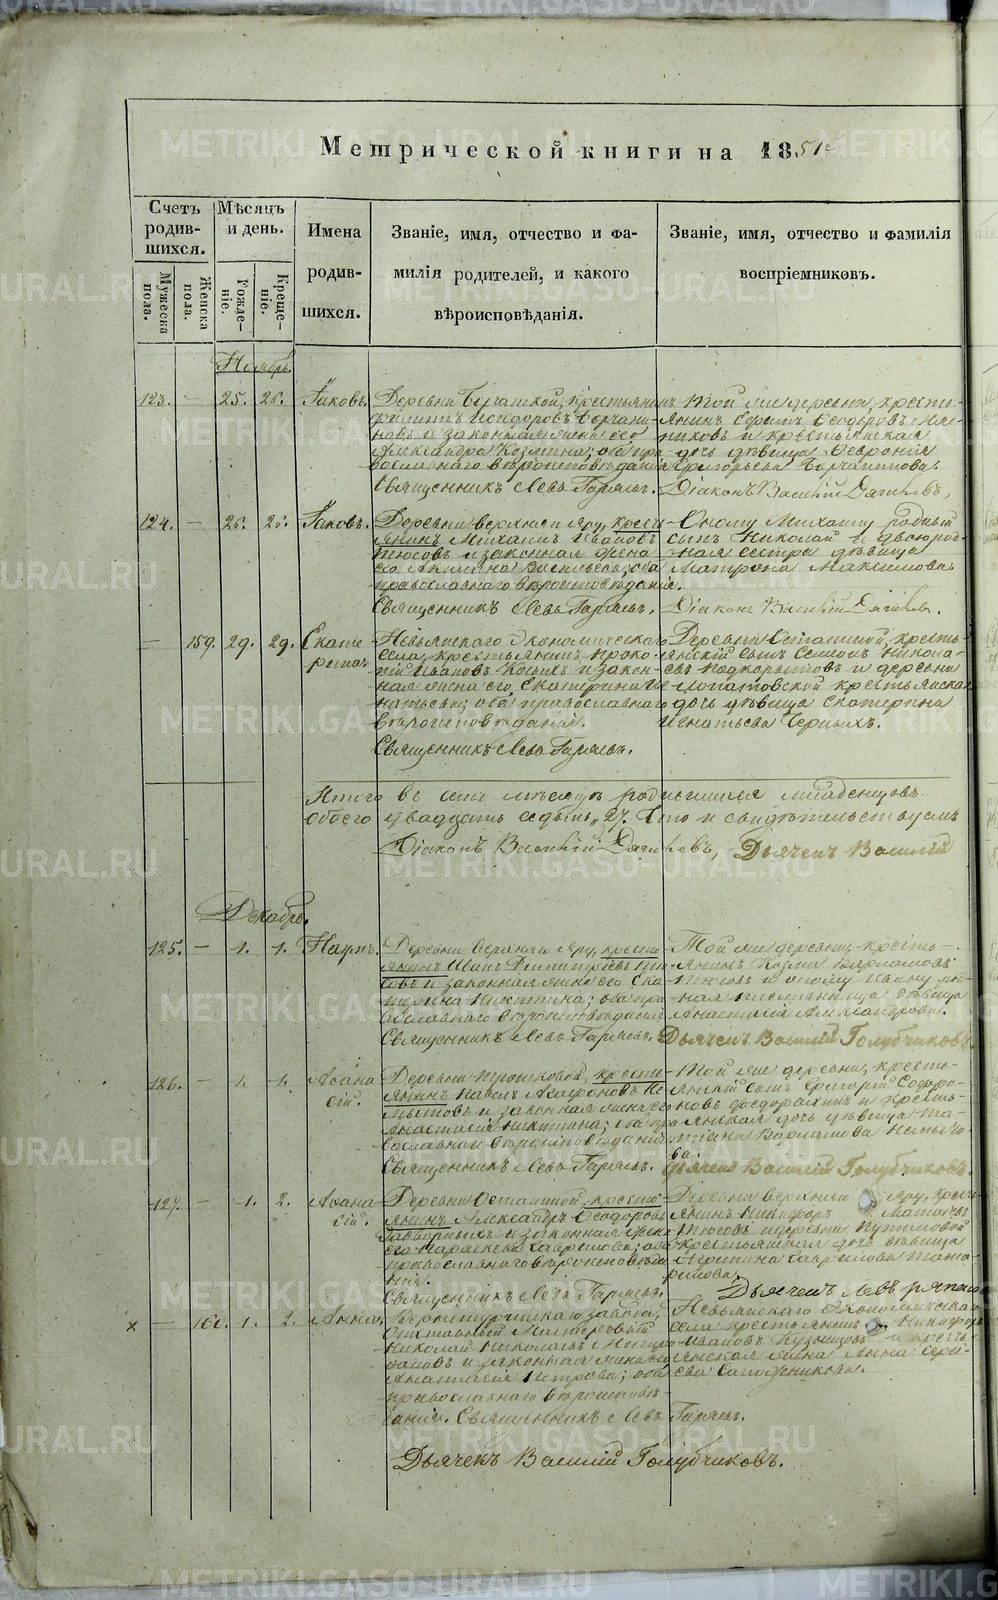 METRIKI.GASO-URAL.RU
Метрической книги на 1851й
Счетъ родив-шихся.
Мужеска пола.
Женска пола.
Мѣсяцъ и день.
Рожде-ніе.
Креще-ніе.
Имена
родив-
шихся.
Званіе, имя, отчество и фа-
милія родителей, и какого
вѣроисповѣданія.
Званіе, имя, отчество и фамилія
воспріемниковъ.
Ноябрь
123. — 25. 26. Іаковъ.
Деревни крестьянинъ
Филиппъ
новъ и законная жена его
Александра Козмина; оба пра-
вославнаго вѣроисповѣданія
Священникъ Левъ Гаряевъ.
Той же деревни, кресть-
янинъ Ефимъ Ѳеодоровъ
и крестьянская
дочь дѣвица Ѳеврония
Григорьева
Діаконъ Василій Дягилевъ,
124. — 26. 26. Іаковъ.
Деревни верхняго Яру, кресть-
янинъ Михаилъ Ивановъ
Тюсовъ и законная жена
его Акилина Васильева; оба
православнаго вѣроисповѣданія.
Священникъ Левъ Гаряевъ.
Оному Михаилу родный
сынъ Николай и двоюрод-
ная сестра дѣвица
Матрона Максимова
Діаконъ Василій Дягилевъ.
— 159. 29. 29. Екате
рина
Невьянскаго Экономическаго
села, крестьянинъ Проко-
пій Ивановъ и закон-
ная жена его, Екатерина Иг
натьева; оба православнаго
вѣроисповѣданія.
Священникъ Левъ Гаряевъ.
Деревни Останиной, кресть-
янскій сынъ Семенъ Никола-
евъ Подкорытовъ и деревни
Лопатовской крестьянская
дочь дѣвица Екатерина
Игнатьева Черныхъ.
Итого въ семъ мѣсяцѣ родившихся младенцовъ
обоего двадцать седмь „27. Что и свидѣтельствуемъ
Діаконъ Василій Дягилевъ, Дьячекъ Василій
Декабрь.
125. — 1. 1. Наумъ.
Деревни Верхняго Яру, кресть
янинъ Иванъ Димитріевъ Тю-
совъ и законная жена его Ека
терина Никитина; оба пра
вославнаго вѣроисповѣданія
Священникъ Левъ Гаряевъ.
Той же деревни кресть-
янинъ Козма Варламовъ
Тюсовъ и оному Ивану род-
ная племянница дѣвица
Анастасія Александрова.
Дьячекъ Василій Голубчиковъ.
126. — 1. 1. Аѳана
сій.
Деревни кресть
янинъ Павелъ Агафоновъ Не
мытовъ и законная жена его
Анастасія Никитина; оба пра
вославнаго вѣроисповѣданія
Священникъ Левъ Гаряевъ.
Той же деревни, кресть-
янскій сынъ Григорій Софро-
новъ и кресть-
янская дочь дѣвица Та-
тіана Варламова Немыто-
ва.
Дьячекъ Василій Голубчиковъ.
127. — 1. 2. Аѳана
сій.
Деревни Останиной, кресть-
янинъ Александръ Ѳеодоровъ
и законная жена
его Параскева Гаврилова; оба
православнаго вѣроисповѣда
нія.
Священникъ Левъ Гаряевъ.
Деревни верхняго Яру, кресть
янинъ Никифоръ
Тюсовъ и деревни Путиловой
крестьянская дочь дѣвица
Агрипина Гаврилова Тата-
ринова.
Дьячекъ Левъ
x — 160. 1. 2. Анна.
Верхтуринскаго завода,
Отставный Мастеровый
Николай Николаевъ
и законная жена его
Анастасія Петрова; оба
православнаго вѣроисповѣ-
данія. Священникъ Левъ Гаряевъ.
Невьянскаго Экономическаго
села крестьянинъ Никифоръ
Ивановъ Кузнецовъ и кресть-
янская жена Анна Серге-
ева Сапожникова.
Дьячекъ Василій Голубчиковъ.